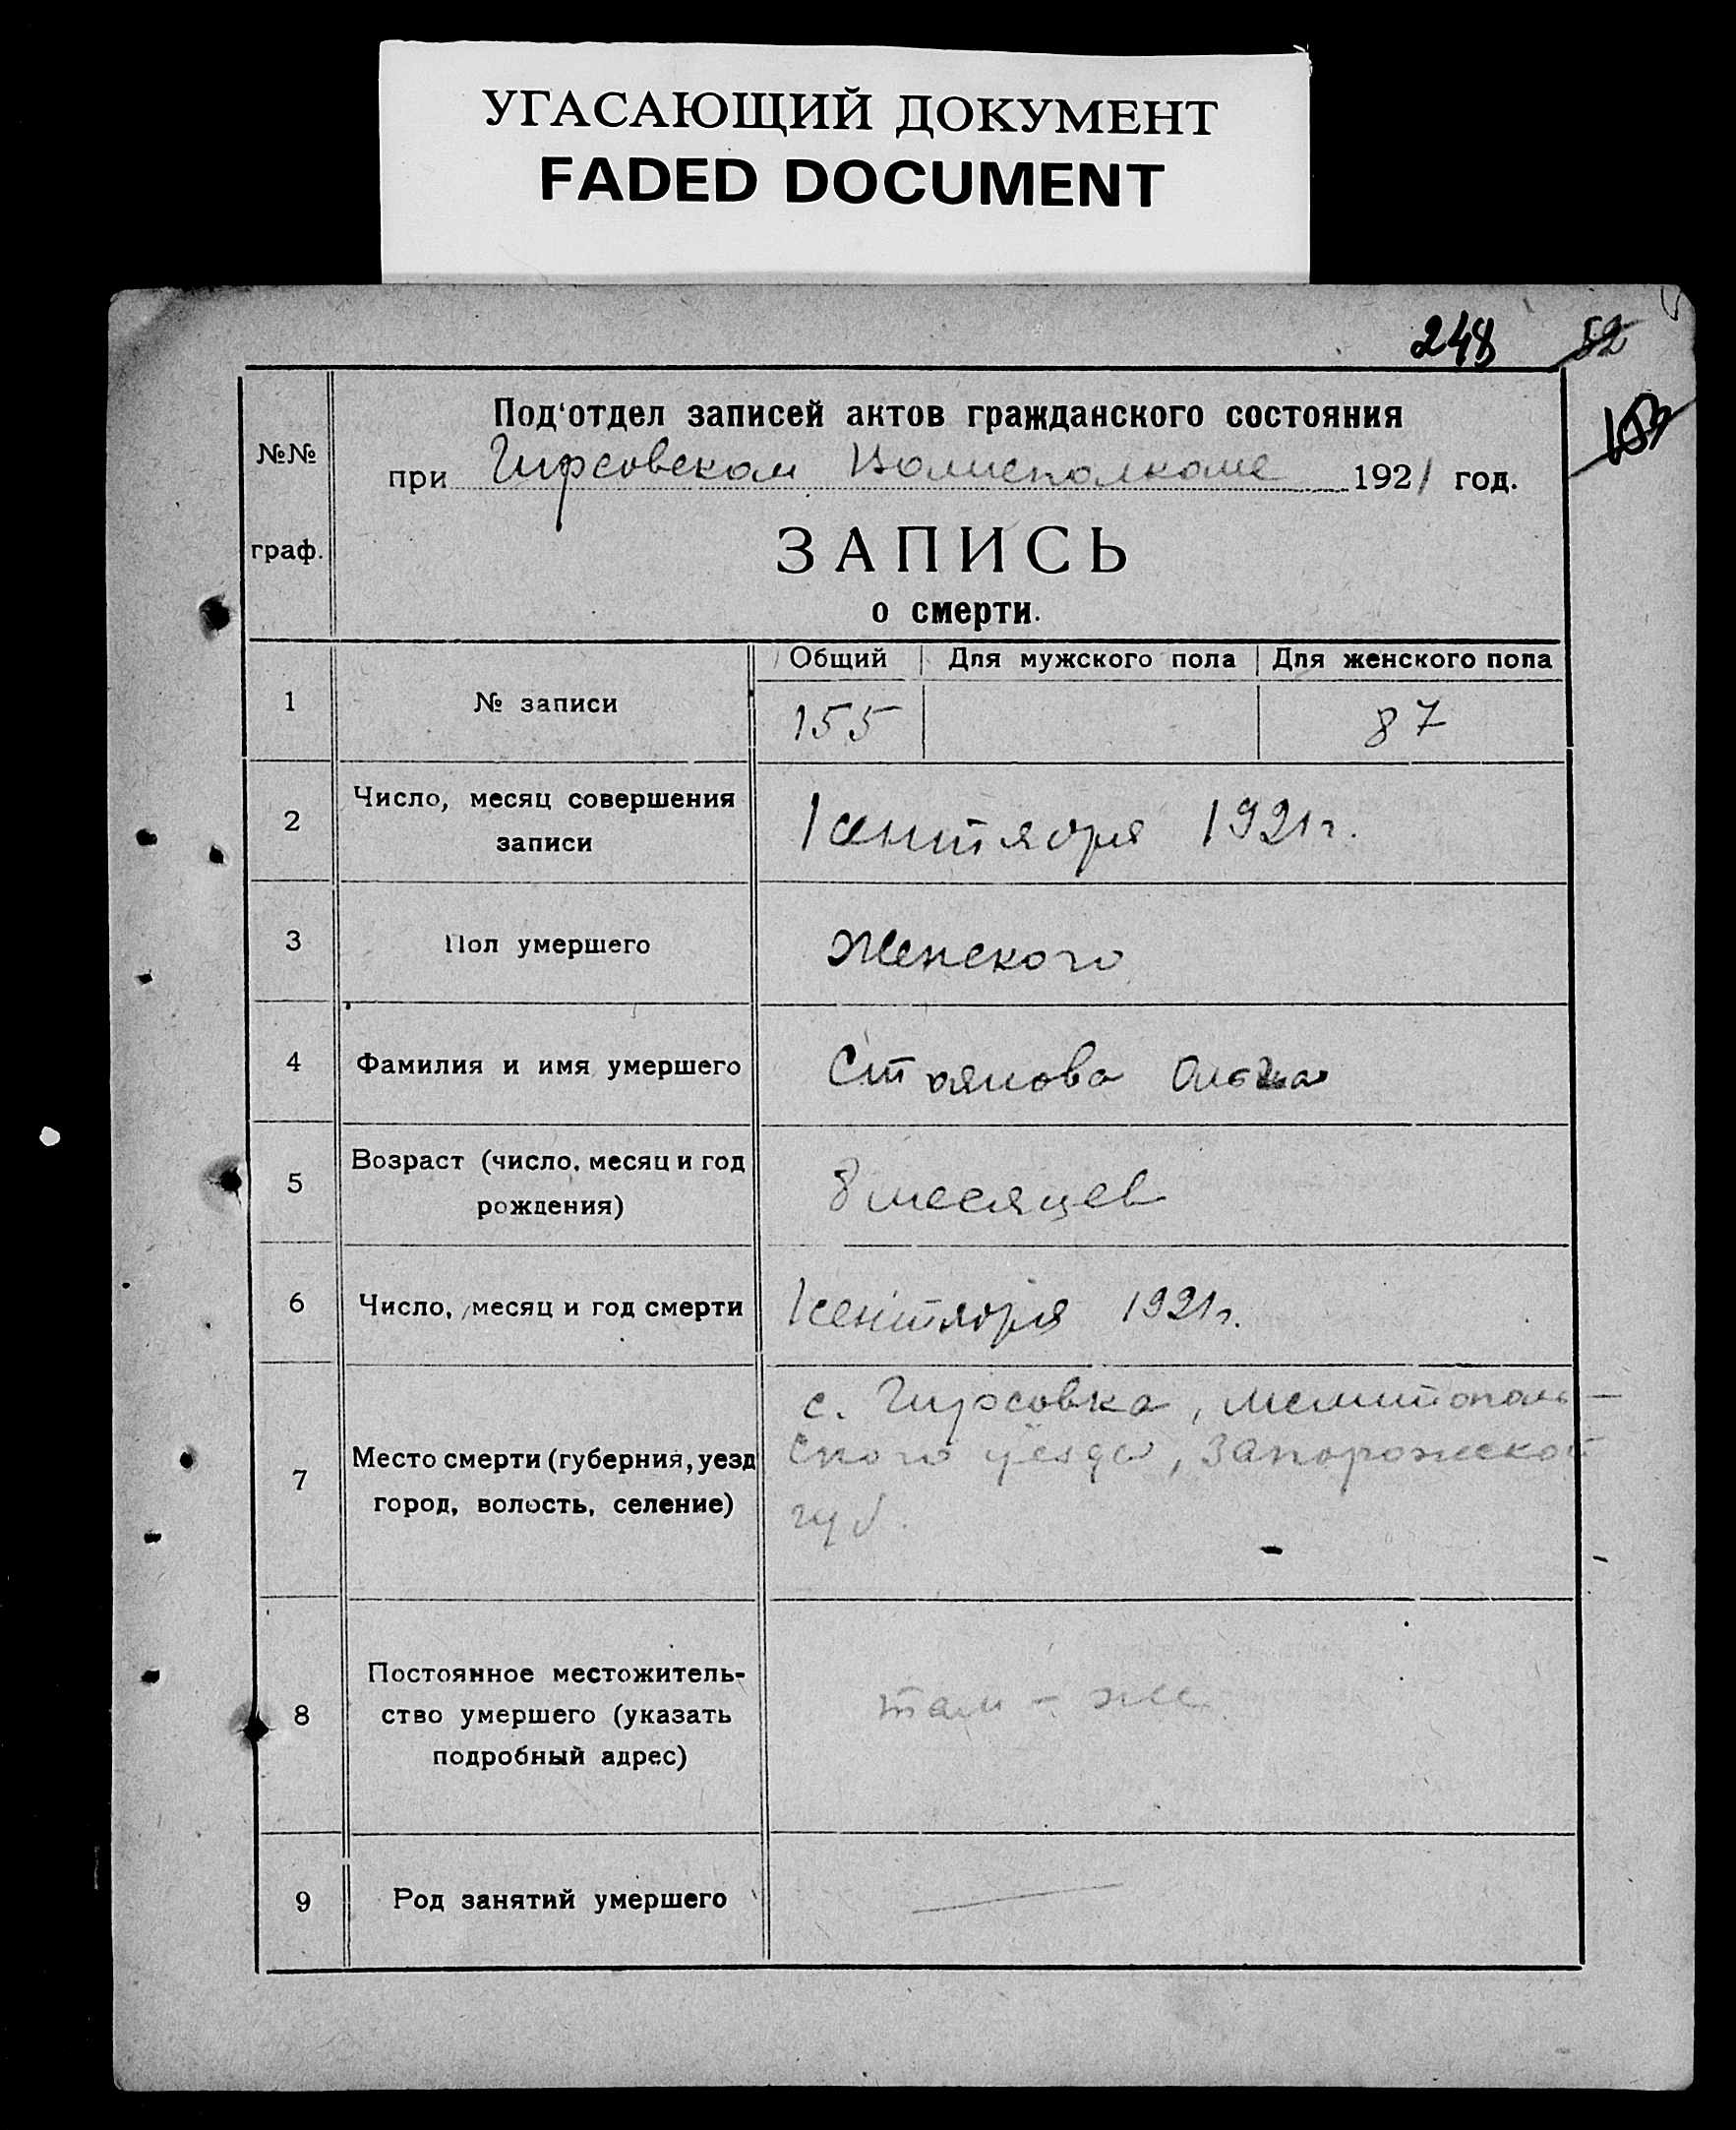 УГАСАЮЩИЙ ДОКУМЕНТ
FADED DOCUMENT
248 52
153
№№ граф.
Под'отдел записей актов гражданского состояния
при Гирсовском Волисполкоме 1921 год.
ЗАПИСЬ
о смерти.
Общий Для мужского пола Для женского пола
1 № записи 155 87
2 Число, месяц совершения
записи
1 сентября 1921 г.
3 Пол умершего Женского
4 Фамилия и имя умершего Стоянова Ольга
5 Возраст (число, месяц и год
рождения)
8 месяцев
6 Число, месяц и год смерти 1 сентября 1921 г.
7 Место смерти (губерния, уезд
город, волость, селение)
с. Гирсовка, Мелитополь-
ского уезда, Запорожской
губ.
8 Постоянное местожитель-
ство умершего (указать
подробный адрес)
там - же
9 Род занятий умершего